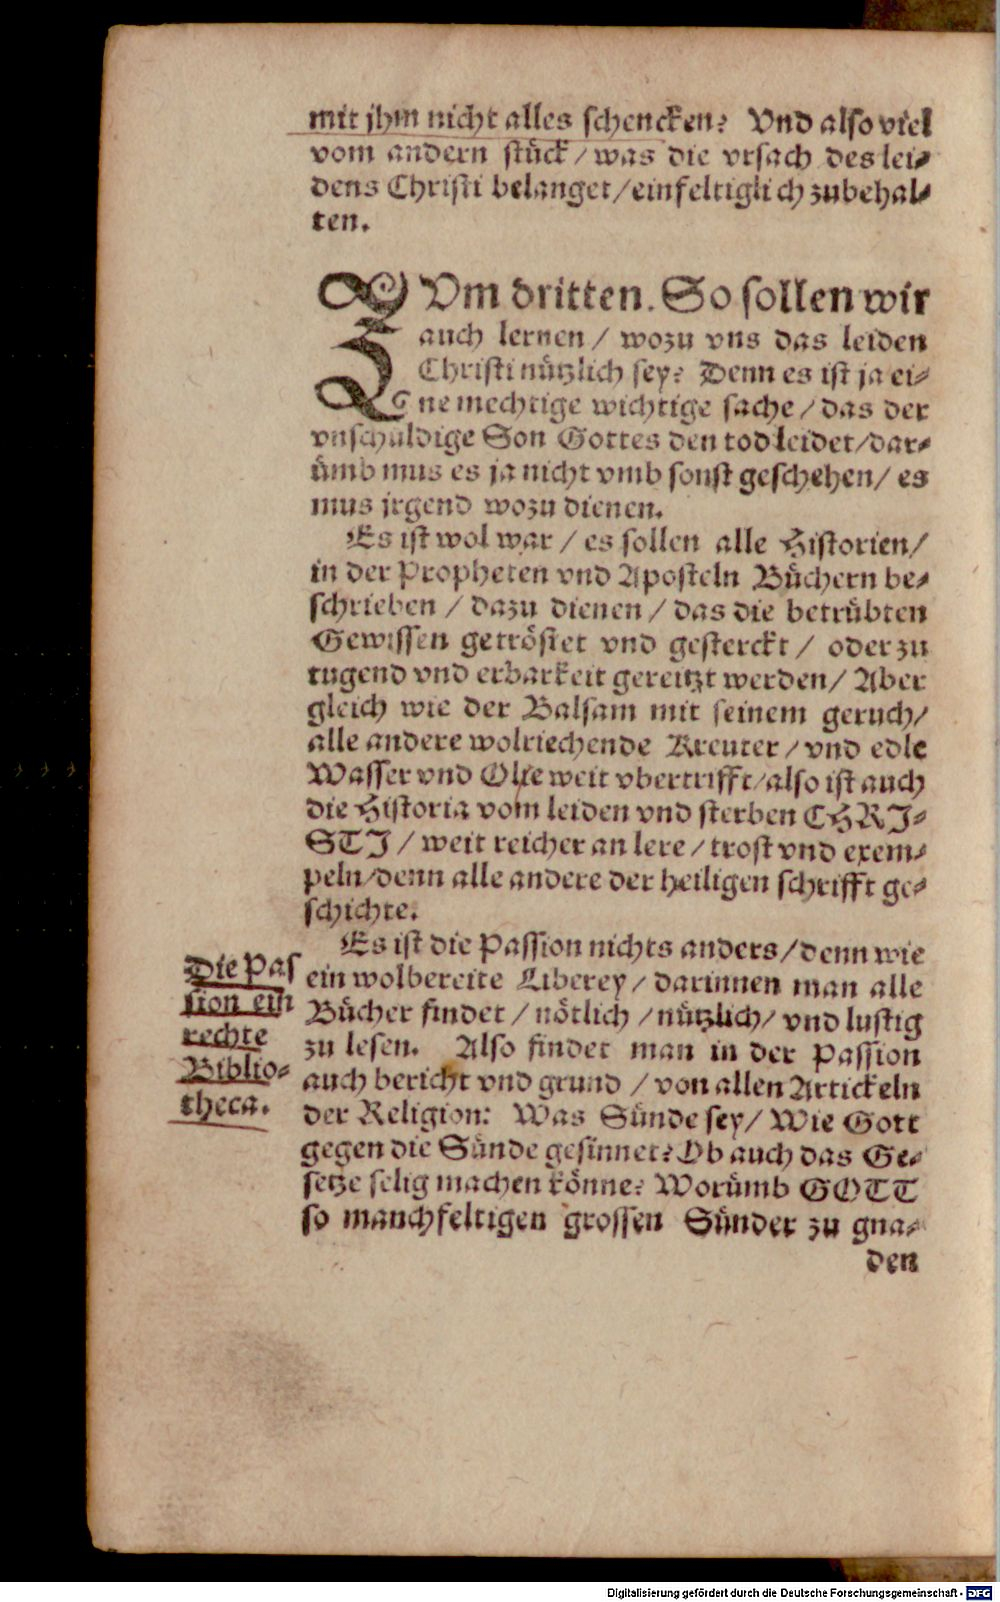 mit jhm nicht alles schencken? Vnd also viel
vom andern stück / was die vrsach des lei⸗
dens Christi belanget / einfeltiglich zubehal⸗
ten.
ZVm dritten. So sollen wir
auch lernen / wozu vns das leiden
Christi nützlich sey? Denn es ist ja ei⸗
ne mechtige wichtige sache / das der
vnschuldige Son Gottes den tod leidet / dar⸗
ümb mus es ja nicht vmb sonst geschehen / es
mus jrgend wozu dienen.
Es ist wol war / es sollen alle Historien /
in der Propheten vnd Aposteln Büchern be⸗
schrieben / dazu dienen / das die betrübten
Gewissen getröstet vnd gesterckt / oder zu
tugend vnd erbarkeit gereitzt werden / Aber
gleich wie der Balsam mit seinem geruch /
alle andere wolriechende Kreuter / vnd edle
Wasser vnd Olie weit vbertrifft / also ist auch
die Historia vom leiden vnd sterben CHRJ⸗
STJ / weit reicher an lere / trost vnd exem⸗
peln / denn alle andere der heiligen schrifft ge⸗
schichte.
Es ist die Passion nichts anders / denn wie
ein wolbereite Liberey / darinnen man alle
Bücher findet / nötlich / nützlich / vnd lustig
zu lesen. Also findet man in der Passion
auch bericht vnd grund / von allen Artickeln
der Religion: Was Sünde sey / Wie Gott
gegen die Sünde gesinnet? Ob auch das Ge⸗
setze selig machen könne? Worümb GOTT
so manchfeltigen grossen Sünder zu gna⸗
den
Die Pas
sion ein
rechte
Biblio⸗
theca.
Digitalisierung gefördert durch die Deutsche Forschungsgemeinschaft - DFG